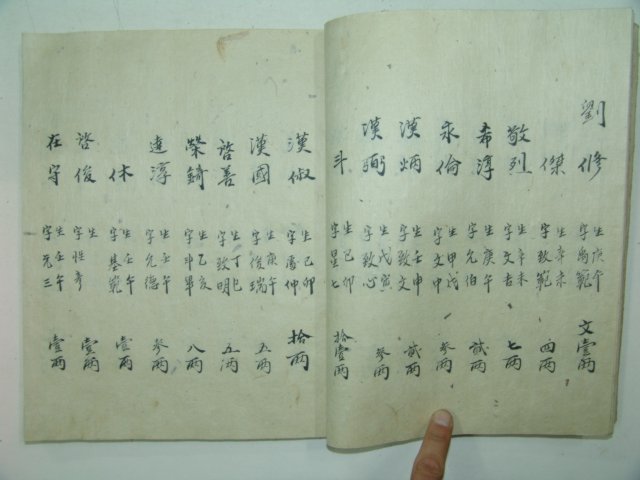 劉修 字禹範 生庚午 文壹兩
傑 字致範 生辛未 四兩
敬烈 字文吉 生辛未 七兩
希淳 字允伯 生庚午 貳兩
永倫 字文中 生甲戌 參兩
漢炳 字致文 生壬申 貳兩
漢弼 字致心 生戊寅 參兩
斗 字星七 生己卯 拾壹兩
漢俶 字 仲 生己卯 拾兩
漢國 字俊瑞 生庚午 五兩
啓善 字致明 生丁巳 五兩
榮錡 字 生乙亥 八兩
達淳 字允德 生壬午 參兩
休 字基範 生壬午 壹兩
啓俊 字性彥 生 壹兩
在守 字元三 生壬午 壹兩